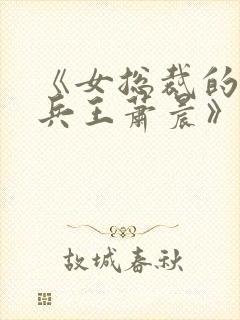 《女总裁的
兵王萧晨》
故城春秋